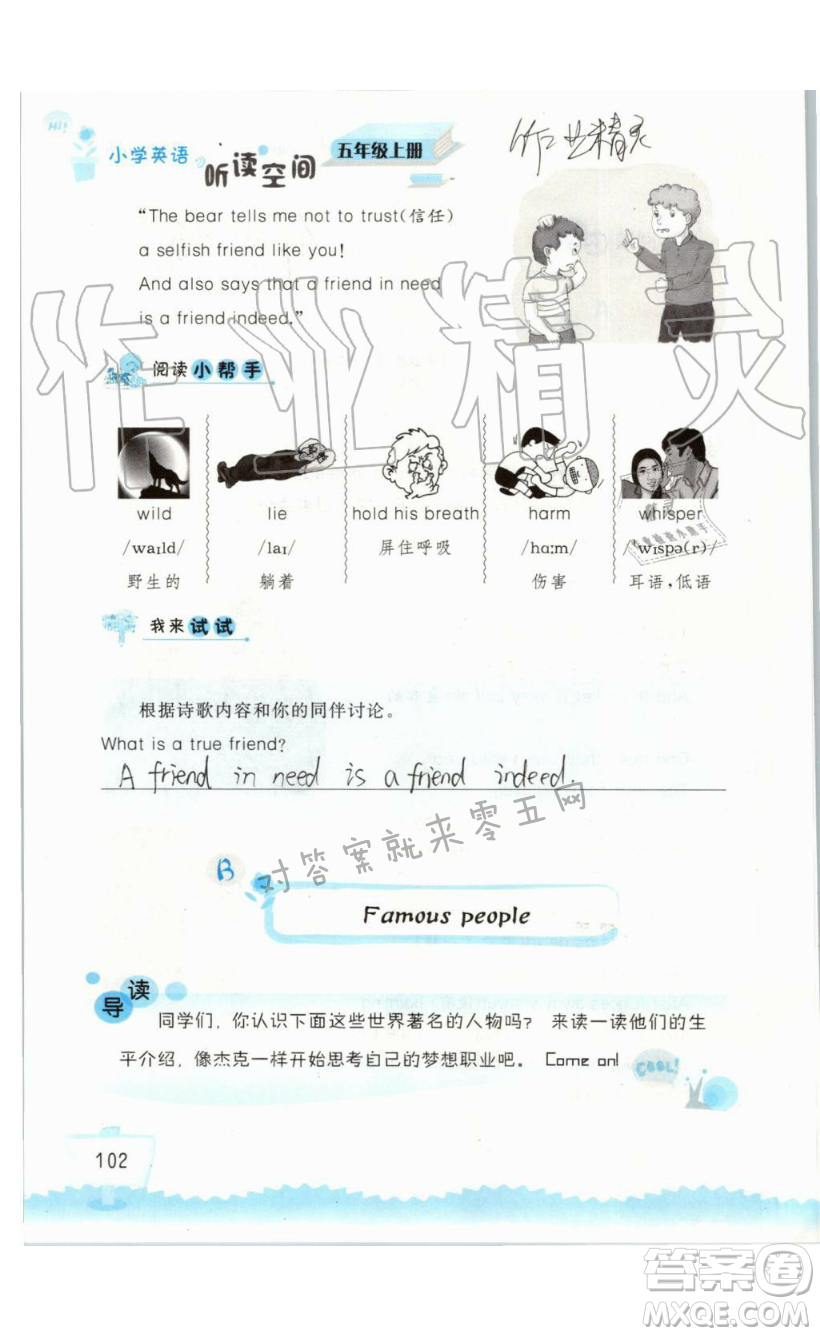 Hi!
小学英语
听读空间
五年级上册
作业精灵
"The bear tells me not to trust(信任)
a selfish friend like you!
And also says that a friend in need
is a friend indeed."
作业精灵
阅读小帮手
wild
lie
hold his breath
harm
whisper
/waɪld/
/laɪ/
屏住呼吸
/hɑːm/
/ˈwɪspə(r)/
野生的
躺着
伤害
耳语,低语
我来试试
根据诗歌内容和你的同伴讨论。
What is a true friend?
A friend in need is a friend indeed.
对答案就来零五网
B
Famous people
导读
同学们,你认识下面这些世界著名的人物吗? 来读一读他们的生
平介绍,像杰克一样开始思考自己的梦想职业吧。 Come on!
COOL!
102
答案卷
MXQE.COM